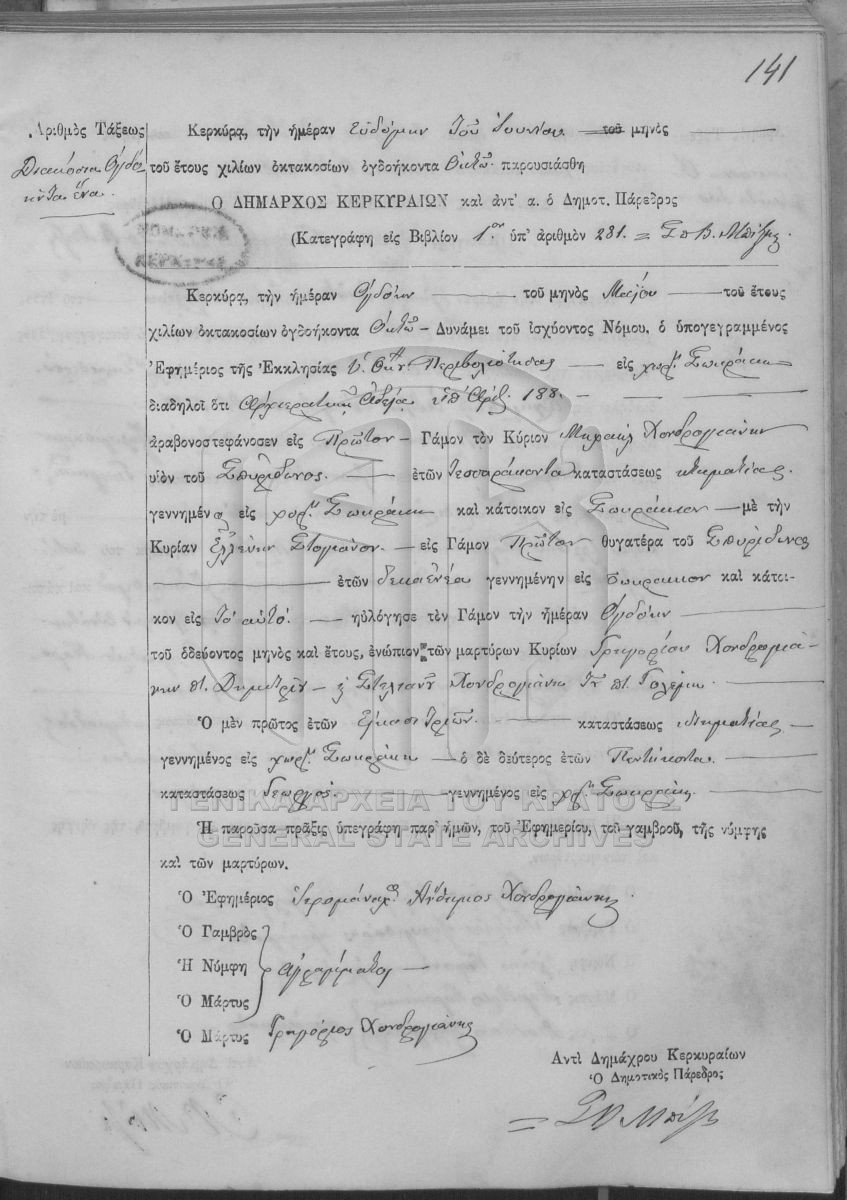 141
Ἀριθμὸς Τάξεως
Διακόσια Ὀγδο
ῆντα ἕνα.
Κερκύρᾳ, τὴν ἡμέραν ἑυδόμην Τοῦ Ἰουνίου τοῦ μηνὸς
τοῦ ἔτους χιλίων ὀκτακοσίων ὀγδοήκοντα Ὀκτῶ παρουσιάσθη
Ο ΔΗΜΑΡΧΟΣ ΚΕΡΚΥΡΑΙΩΝ καὶ ἀντ' α. ὁ Δημοτ. Πάρεδρος
(Κατεγράφη εἰς Βιβλίον 1ον ὑπ' ἀριθμὸν 281. =
Κερκύρᾳ, τὴν ἡμέραν Ὀγδόην — τοῦ μηνὸς Μαΐου — τοῦ ἔτους
χιλίων ὀκτακοσίων ὀγδοήκοντα Ὀκτῶ — Δυνάμει τοῦ ἰσχύοντος Νόμου, ὁ ὑπογεγραμμένος
Ἐφημέριος τῆς Ἐκκλησίας Ὑ. Θκου Περιβολιότισας — εἰς χωρ. Σωκράκι
διαδηλοῖ ὅτι Ἀρχιερατικῇ Ἀδείᾳ ὑπ' Ἀρθ. 188. —
ἀραβονοστεφάνοσεν εἰς Πρῶτον — Γάμον τὸν Κύριον Μιχαὴλ Χονδρογιάνην
υἱὸν τοῦ Σπυρίδωνος. — ἐτῶν Τεσσαράκοντα καταστάσεως κτηματίας.
γεννημένο εἰς χωρ. Σωκράκι καὶ κάτοικον εἰς Σωκράκιον — μὲ τὴν
Κυρίαν Ἑλλένην — εἰς Γάμον Πρῶτον θυγατέρα τοῦ Σπυρίδωνος
— ἐτῶν δεκαενέα γεννημένην εἰς Σωκρακιον καὶ κάτοι-
κον εἰς Τὸ αὐτό. — ηὐλόγησε τὸν Γάμον τὴν ἡμέραν Ὀγδόην —
τοῦ ὁδεύοντος μηνὸς καὶ ἔτους, ἐνώπιον τῶν μαρτύρων Κυρίων Γρηγορίου Χονδρογιά-
νην Δημητρίου — Στελιανοῦ Χονδρογιάνη
Ὁ μὲν πρῶτος ἐτῶν Εἴκοσι Τριῶν. — καταστάσεως κτηματίας —
γεννημένος εἰς χωρ. Σωκράκι — ὁ δὲ δεύτερος ἐτῶν Πεντήκοντα. —
καταστάσεως Γεωργός. — γεννημένος εἰς χωρ. Σωκράκι. —
ΓΕΝΙΚΑ ΑΡΧΕΙΑ ΤΟΥ ΚΡΑΤΟΥΣ
Ἡ παροῦσα πρᾶξις ὑπεγράφη παρ' ἡμῶν, τοῦ Ἐφημερίου, τοῦ γαμβροῦ, τῆς νύμφης
GENERAL STATE ARCHIVES
καὶ τῶν μαρτύρων.
Ὁ Ἐφημέριος Ἱερομόναχος Ἄνθιμος Χονδρογιάνης
Ὁ Γαμβρὸς
Ἡ Νύμφη ἀγράμματοι —
Ὁ Μάρτυς
Ὁ Μάρτυς Γρηγόριος Χονδρογιάνης
Ἀντὶ Δημάχρου Κερκυραίων
Ὁ Δημοτικὸς Πάρεδρος